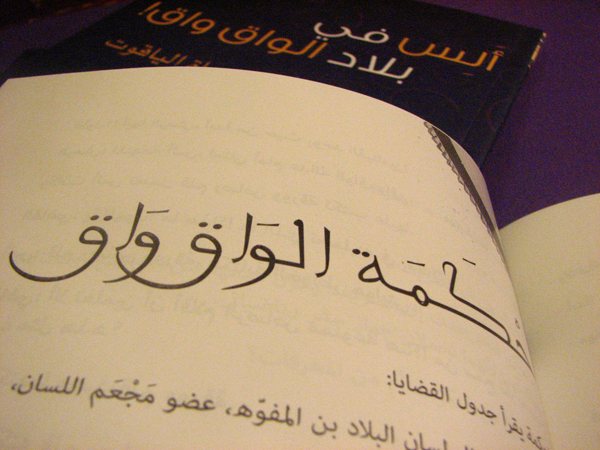 أَلِس في
بلاد الواق واق!
الياقوت
الوَاق وَاق
يقرأ جدول القضايا:
البلاد بن المفوّه، عضو مَجْعَم اللسان،